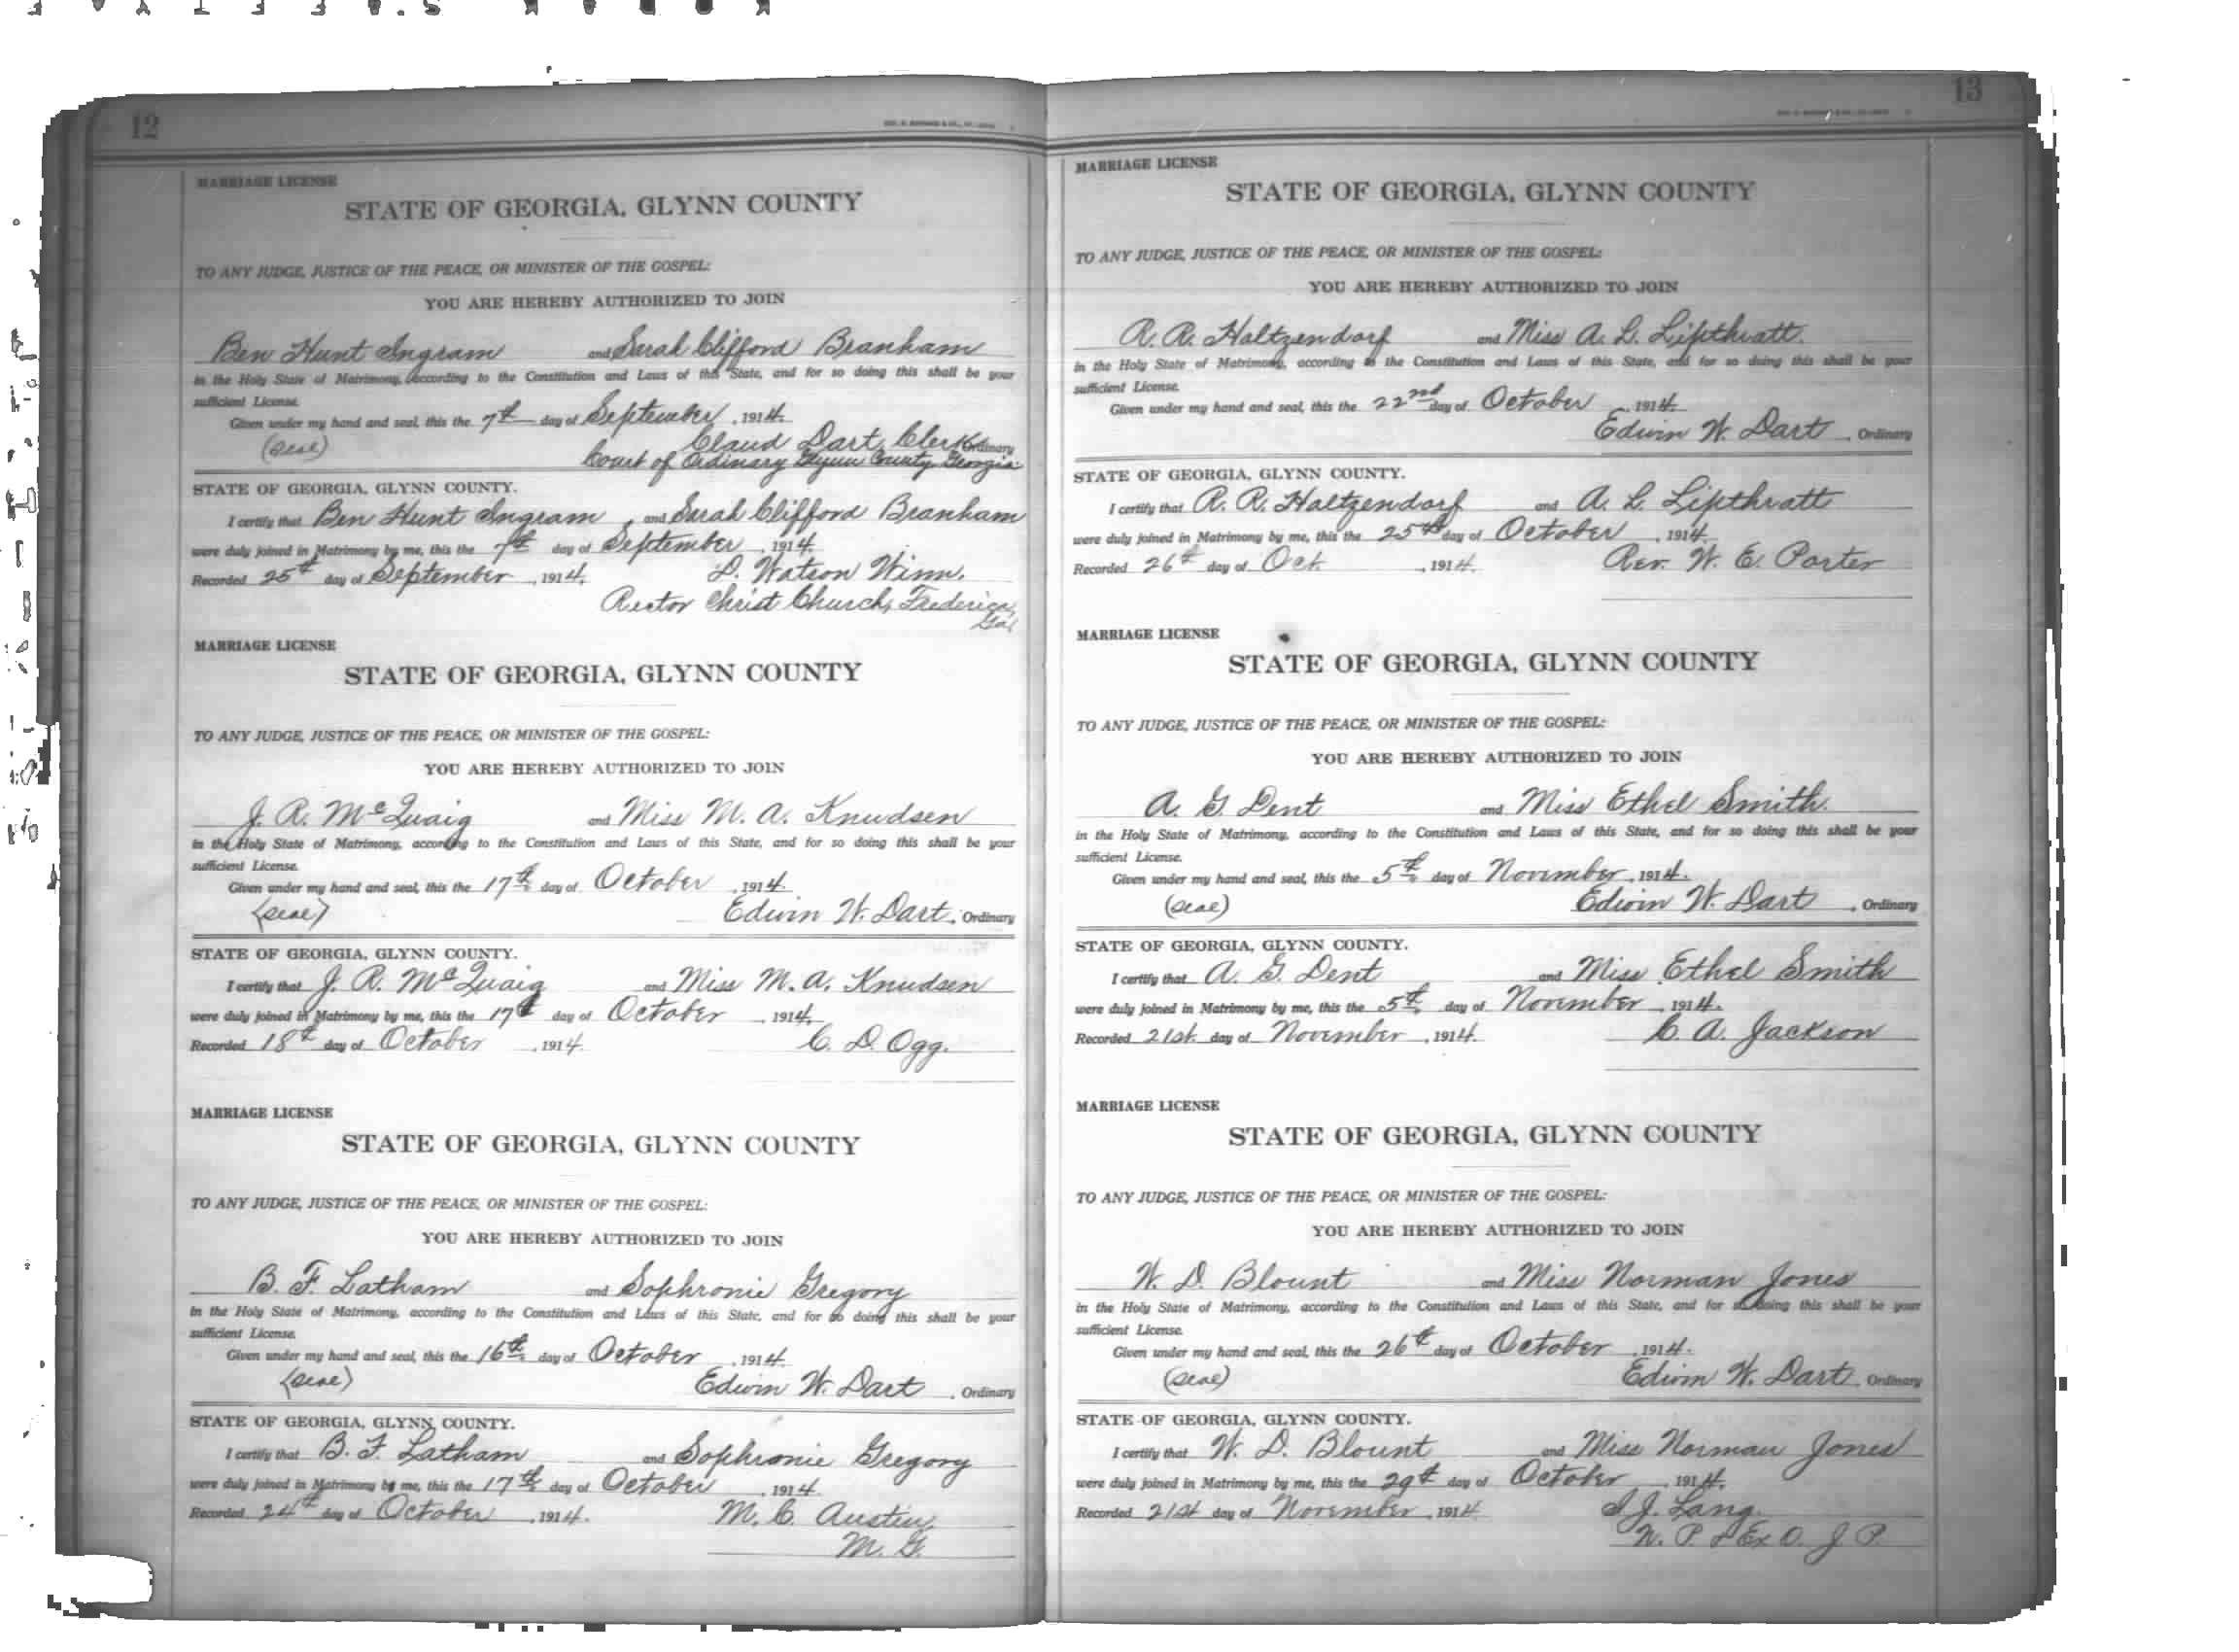 12
MARRIAGE LICENSE
STATE OF GEORGIA, GLYNN COUNTY
TO ANY JUDGE, JUSTICE OF THE PEACE, OR MINISTER OF THE GOSPEL:
YOU ARE HEREBY AUTHORIZED TO JOIN
Ben Hunt Ingram and Sarah Clifford Branham
in the Holy State of Matrimony, according to the Constitution and Laws of this State, and for so doing this shall be your
sufficient License.
Given under my hand and seal, this the 7th day of September, 1914.
(Seal) Claud Dart, Clerk Ordinary
Court of Ordinary Glynn County, Georgia.
STATE OF GEORGIA, GLYNN COUNTY.
I certify that Ben Hunt Ingram, and Sarah Clifford Branham
were duly joined in Matrimony by me, this the 7th day of September, 1914.
Recorded 25th day of September, 1914. D. Watson Winn,
Rector Christ Church, Frederica,
Ga.
MARRIAGE LICENSE
STATE OF GEORGIA, GLYNN COUNTY
TO ANY JUDGE, JUSTICE OF THE PEACE, OR MINISTER OF THE GOSPEL:
YOU ARE HEREBY AUTHORIZED TO JOIN
J. R. McQuaig and Miss M. A. Knudsen
in the Holy State of Matrimony, according to the Constitution and Laws of this State, and for so doing this shall be your
sufficient License.
Given under my hand and seal, this the 17th day of October, 1914.
(Seal) Edwin W. Dart, Ordinary
STATE OF GEORGIA, GLYNN COUNTY.
I certify that J. R. McQuaig and Miss M. A. Knudsen
were duly joined in Matrimony by me, this the 17th day of October, 1914.
Recorded 18th day of October, 1914. C. D. Ogg.
MARRIAGE LICENSE
STATE OF GEORGIA, GLYNN COUNTY
TO ANY JUDGE, JUSTICE OF THE PEACE, OR MINISTER OF THE GOSPEL:
YOU ARE HEREBY AUTHORIZED TO JOIN
B. F. Latham and Sophronie Gregory
in the Holy State of Matrimony, according to the Constitution and Laws of this State, and for so doing this shall be your
sufficient License.
Given under my hand and seal, this the 16th day of October, 1914.
(Seal) Edwin W. Dart, Ordinary
STATE OF GEORGIA, GLYNN COUNTY.
I certify that B. F. Latham and Sophronie Gregory
were duly joined in Matrimony by me, this the 17th day of October, 1914.
Recorded 24th day of October, 1914. M. C. Austin,
M. G.
13
MARRIAGE LICENSE
STATE OF GEORGIA, GLYNN COUNTY
TO ANY JUDGE, JUSTICE OF THE PEACE, OR MINISTER OF THE GOSPEL:
YOU ARE HEREBY AUTHORIZED TO JOIN
R. R. Haltzendorf and Miss A. L. Lipthratt.
in the Holy State of Matrimony, according to the Constitution and Laws of this State, and for so doing this shall be your
sufficient License.
Given under my hand and seal, this the 22nd day of October, 1914.
Edwin W. Dart, Ordinary
STATE OF GEORGIA, GLYNN COUNTY.
I certify that R. R. Haltzendorf and A. L. Lipthratt
were duly joined in Matrimony by me, this the 25th day of October, 1914.
Recorded 26th day of Oct., 1914. Rev. W. E. Porter
MARRIAGE LICENSE
STATE OF GEORGIA, GLYNN COUNTY
TO ANY JUDGE, JUSTICE OF THE PEACE, OR MINISTER OF THE GOSPEL:
YOU ARE HEREBY AUTHORIZED TO JOIN
A. G. Dent and Miss Ethel Smith.
in the Holy State of Matrimony, according to the Constitution and Laws of this State, and for so doing this shall be your
sufficient License.
Given under my hand and seal, this the 5th day of November, 1914.
(Seal) Edwin W. Dart, Ordinary
STATE OF GEORGIA, GLYNN COUNTY.
I certify that A. G. Dent and Miss Ethel Smith
were duly joined in Matrimony by me, this the 5th day of November, 1914.
Recorded 21st. day of November, 1914. C. A. Jackson
MARRIAGE LICENSE
STATE OF GEORGIA, GLYNN COUNTY
TO ANY JUDGE, JUSTICE OF THE PEACE, OR MINISTER OF THE GOSPEL:
YOU ARE HEREBY AUTHORIZED TO JOIN
W. D. Blount and Miss Norman Jones
in the Holy State of Matrimony, according to the Constitution and Laws of this State, and for so doing this shall be your
sufficient License.
Given under my hand and seal, this the 26th day of October, 1914.
(Seal) Edwin W. Dart, Ordinary
STATE OF GEORGIA, GLYNN COUNTY.
I certify that W. D. Blount and Miss Norman Jones
were duly joined in Matrimony by me, this the 29th day of October, 1914.
Recorded 21st day of November, 1914. S. J. Lang.
N. P. & Ex O. J. P.